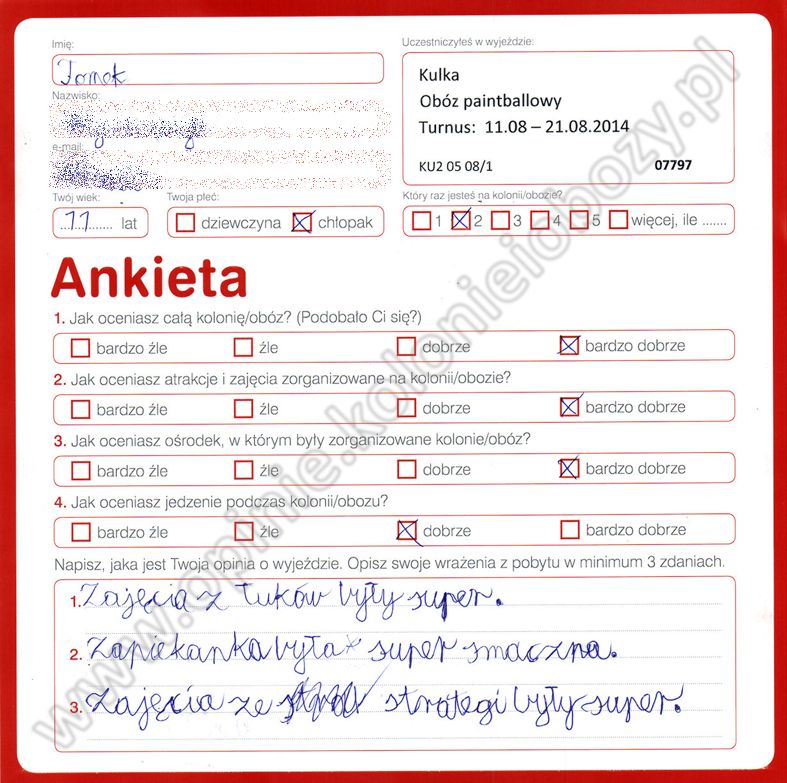 Imię:
Tomek
Nazwisko:
e-mail:
Twój wiek:
11 lat
Twoja płeć:
dziewczyna chłopak
Uczestniczyłeś w wyjeździe:
Kulka
Obóz paintballowy
Turnus: 11.08 – 21.08.2014
KU2 05 08/1 07797
Który raz jesteś na kolonii/obozie?
1 2 3 4 5 więcej, ile .......
Ankieta
1. Jak oceniasz całą kolonię/obóz? (Podobało Ci się?)
bardzo źle źle dobrze bardzo dobrze
2. Jak oceniasz atrakcje i zajęcia zorganizowane na kolonii/obozie?
bardzo źle źle dobrze bardzo dobrze
3. Jak oceniasz ośrodek, w którym były zorganizowane kolonie/obóz?
bardzo źle źle dobrze bardzo dobrze
4. Jak oceniasz jedzenie podczas kolonii/obozu?
bardzo źle źle dobrze bardzo dobrze
Napisz, jaka jest Twoja opinia o wyjeździe. Opisz swoje wrażenia z pobytu w minimum 3 zdaniach.
1. Zajęcia z łuków były super.
2. Zapiekanka była super smaczna.
3. Zajęcia ze strategi były super.
www.opinie.kolonieiobozy.pl